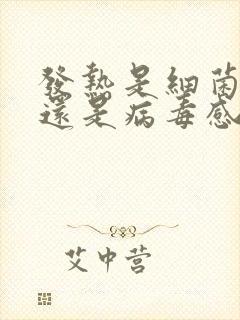 發熱是細菌
還是病毒感
艾中营